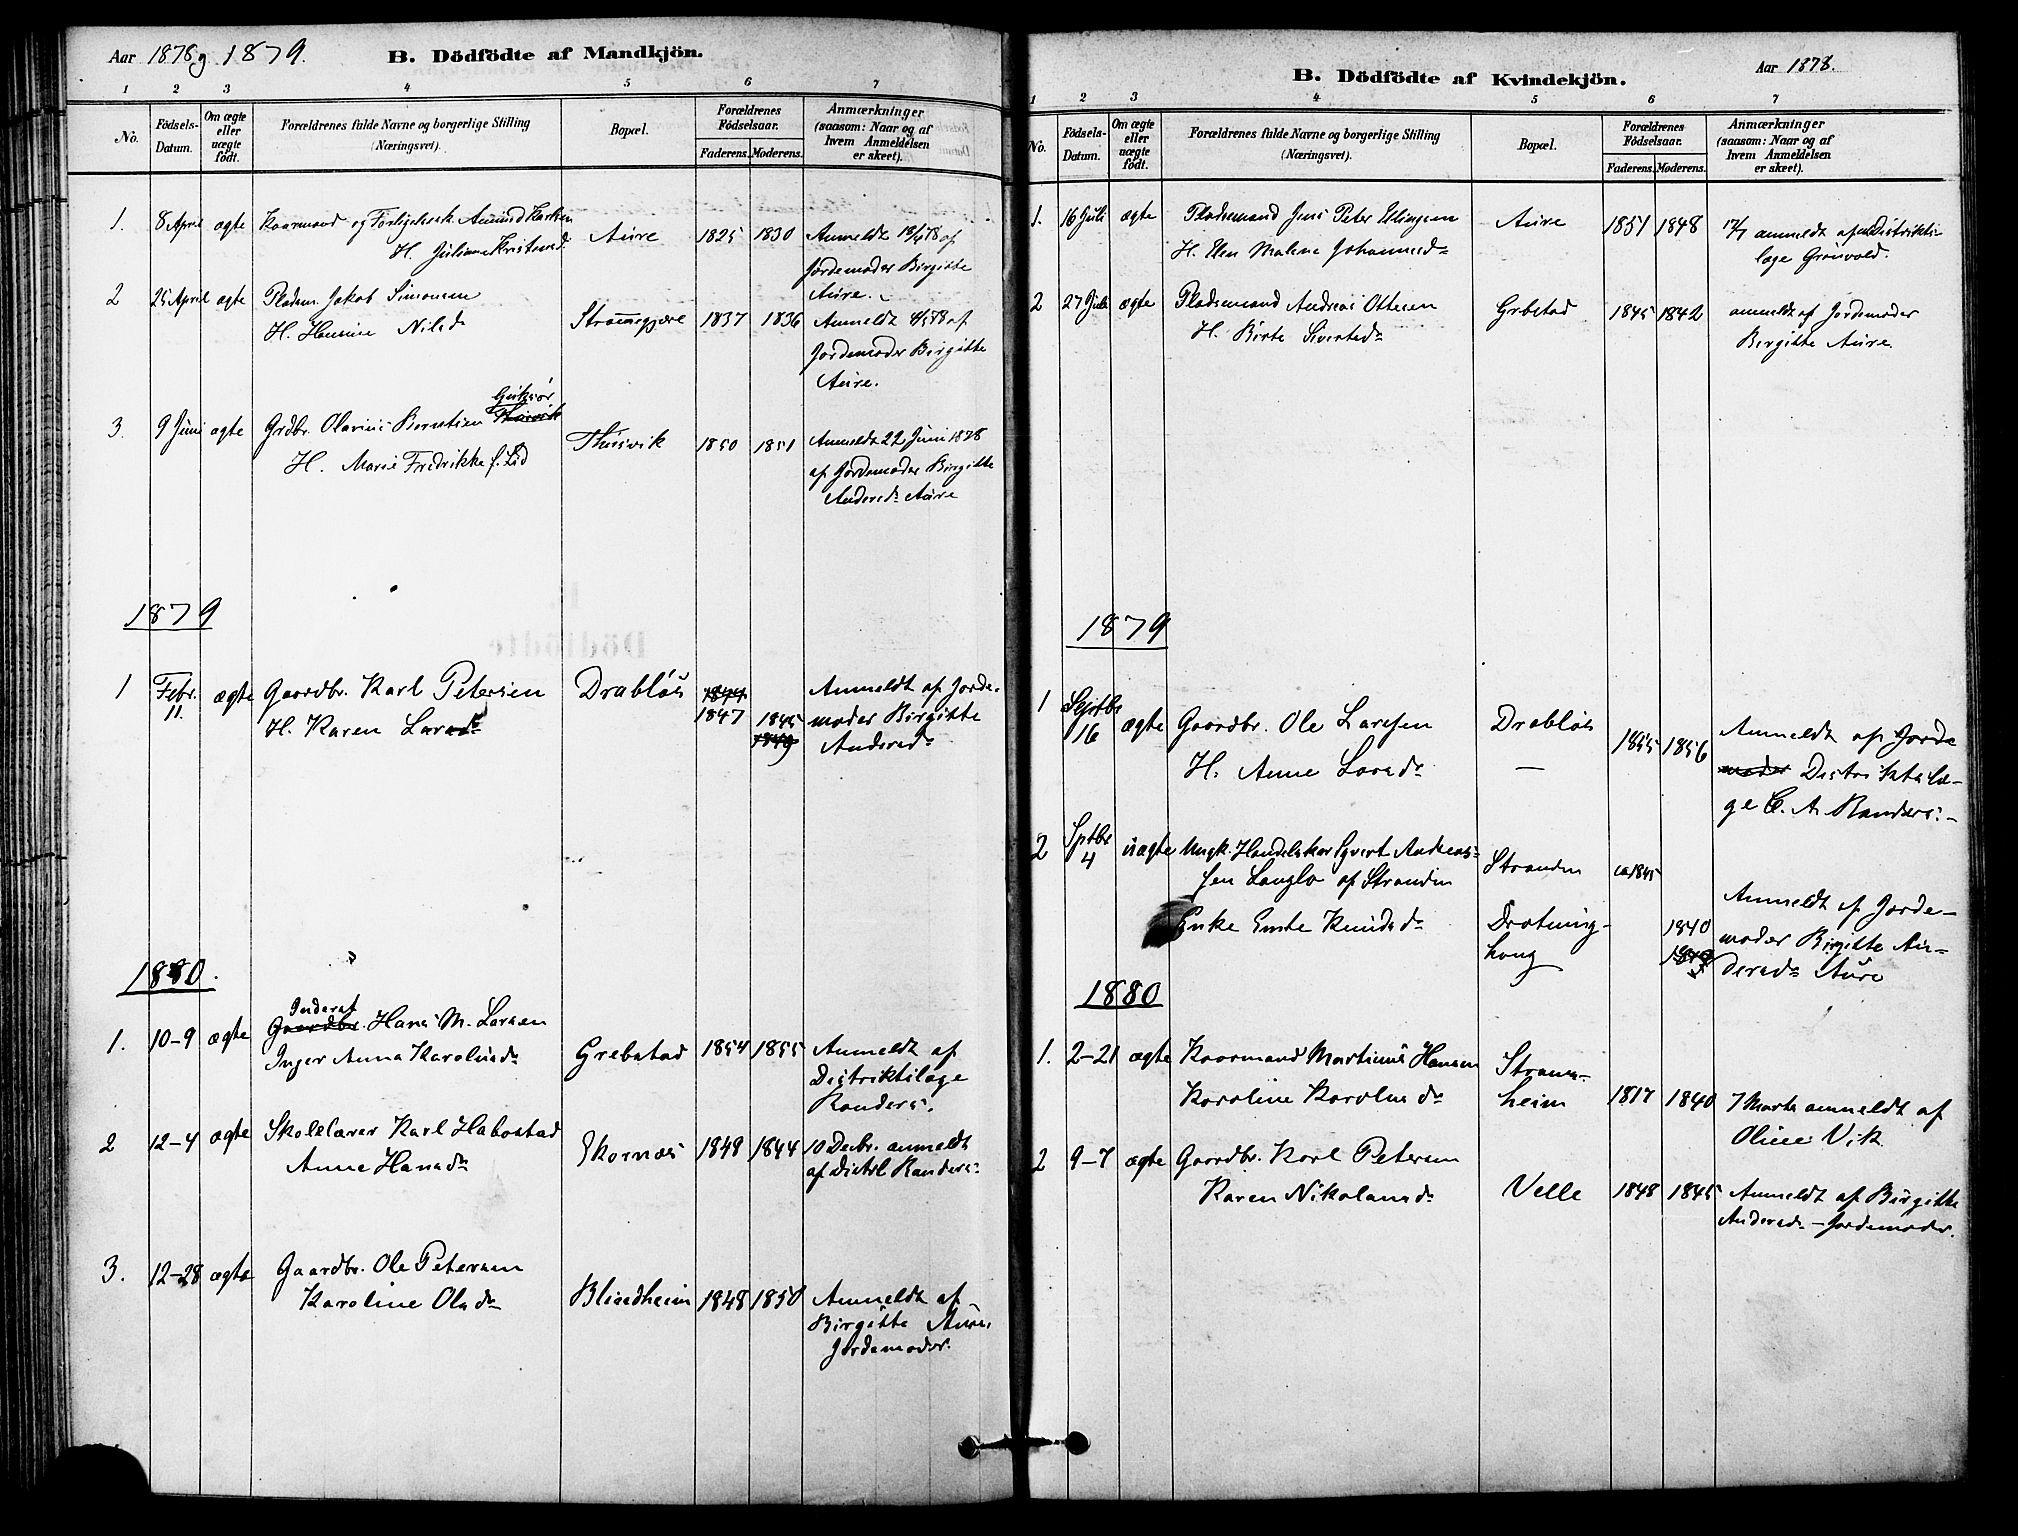 Aar 1878 og 1879.
B. Dödfödte af Mandkjön.
1 2 3 4 5 6 7
No.
Födsels-
Datum.
Om ægte
eller
uægte
födt.
Forældrenes fulde Navne og borgerlige Stilling
(Næringsvei).
Bopæl.
Forældrenes
Födselsaar.
Faderens. Moderens.
Anmærkninger
(saasom: Naar og af
hvem Anmeldelsen
er skeet).
1. 8 April ægte Kaarmand og Forligelsesk. Amund Karlsen
H. Juliane Kristensd.
Aure 1825 1830 Anmeldt 18/4 78 af
Jordemoder Birgitte
Aure.
2 25 April ægte Pladsm. Jakob Simonsen
H. Hansine Nilsd.
1837 1836 Anmeldt 4/5 78 af
Jordemoder Birgitte
Aure.
3. 9 Juni ægte Grdbr. Olavius Berntsen
H. Marie Fredrikke f. Lid
Thusvik 1850 1851 Anmeldt 22 Juni 1878
af Jordemoder Birgitte
Andersd. Aure
1879
1 Febr. 11. ægte Gaardbr. Karl Petersen
H. Karen Larsd.
Drabløs 1844
1847 1845
1849
Anmeldt af Jorde-
moder Birgitte
Andersd.
1880.
1. 10-9 ægte Inderst
Gaardbr. Hans M. Larsen
Inger Anna Karolusd.
Grebstad 1854 1855 Anmeldt af
Distriktslæge
Randers.
2 12-4 ægte Skolelærer Karl Habostad
Anne Hansd.
Skornæs 1848 1844 10 Decbr. anmeldt
af Distrl Randers
3. 12-28 ægte Gaardbr. Ole Petersen
Karoline Olsd.
Blindheim 1848 1850 Anmeldt af
Birgitte Aure,
Jordemoder.
B. Dödfödte af Kvindekjön.
Aar 1878.
1 2 3 4 5 6 7
No.
Födsels-
Datum.
Om ægte
eller
uægte
födt.
Forældrenes fulde Navne og borgerlige Stilling
(Næringsvei).
Bopæl.
Forældrenes
Födselsaar.
Faderens. Moderens.
Anmærkninger
(saasom: Naar og af
hvem Anmeldelsen
er skeet).
1. 16 Juli ægte Pladsemand Jens Peter Ellingsen
H. Elen Malene Johannesd.
Aure 1851 1848 17/7 anmeldt af Distrikts-
læge Grönvold.
2 27 Juli ægte Pladsemand Andreas Ottesen
H. Birte Sivertsd.
Grbstad 1845 1842 anmeldt af Jordemoder
Birgitte Aure
1879
1 Septbr 16 ægte Gaardbr. Ole Larssen
H. Anne Larsd.
Drabløs
—
1855 1856 Anmeldt af Jorde
moder Distriktslæ-
ge C. A. Randers.
2 Sptbr 4 uægte Ungk. Handelskar Syvert Andreas-
sen Langlo af Stranden
Enke Emte Knudsd.
Stranden ca 1845
Drotning-
haug
1840
Anmeldt af Jorde-
moder Birgitte An-
dersd. Aure
1880
1. 2-21 ægte Kaarmand Martinus Hansen
Karoline Karolusd.
Straum-
heim
1817 1840 7 Marts anmeldt af
Oline Vik
2 9-7 ægte Gaardbr. Karl Petersen
Karen Nikolaisd.
Velle 1848 1845 Anmeldt af Birgitte
Andersd. - Jordemoder.